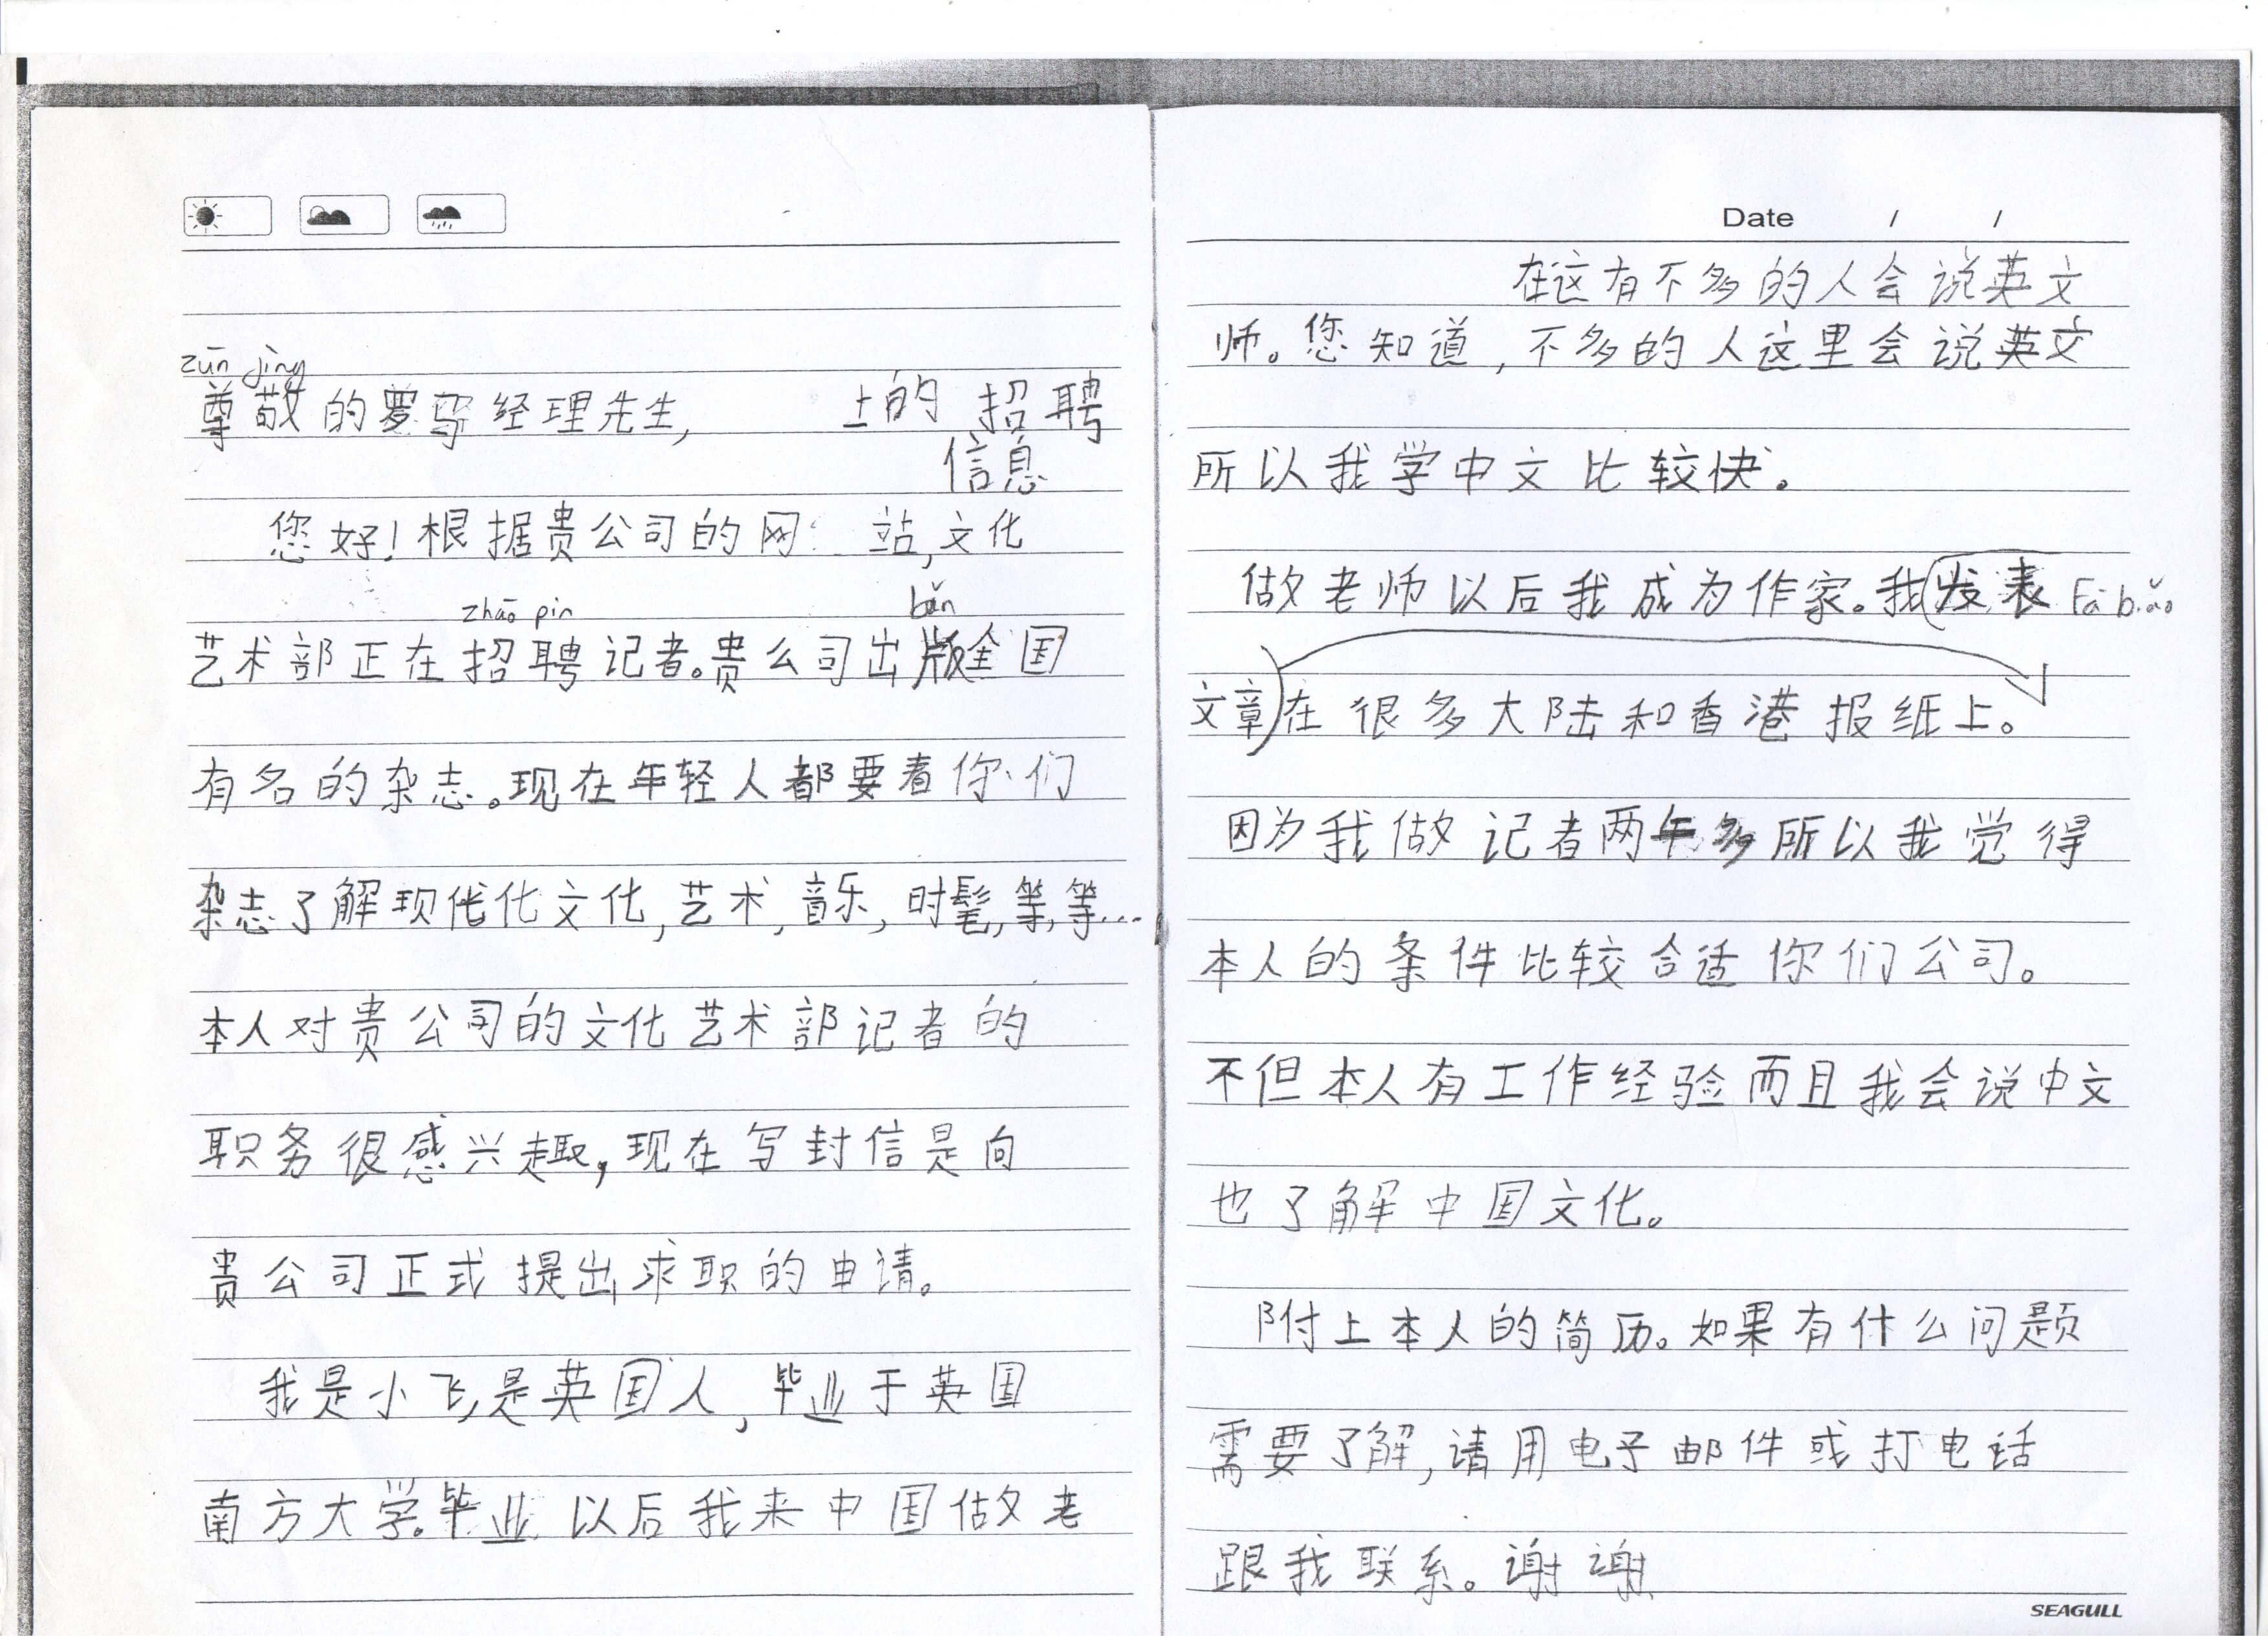 zūn jìng
尊敬的罗马经理先生,
上的招聘
信息
您好!根据贵公司的网站,文化
zhāo pìn
bǎn
艺术部正在招聘记者。贵公司出版全国
有名的杂志。现在年轻人都要看你们
杂志了解现代化文化,艺术,音乐,时髦,等,等...
本人对贵公司的文化艺术部记者的
职务很感兴趣,现在写封信是向
贵公司正式提出求职的申请。
我是小飞,是英国人,毕业于英国
南方大学。毕业以后我来中国做老
Date / /
在这有不多的人会说英文
师。您知道,不多的人这里会说英文
所以我学中文比较快。
做老师以后我成为作家。我发表 Fā biǎo
文章在很多大陆和香港报纸上。
因为我做记者两年多所以我觉得
本人的条件比较合适你们公司。
不但本人有工作经验而且我会说中文
也了解中国文化。
附上本人的简历。如果有什么问题
需要了解,请用电子邮件或打电话
跟我联系。谢谢
SEAGULL